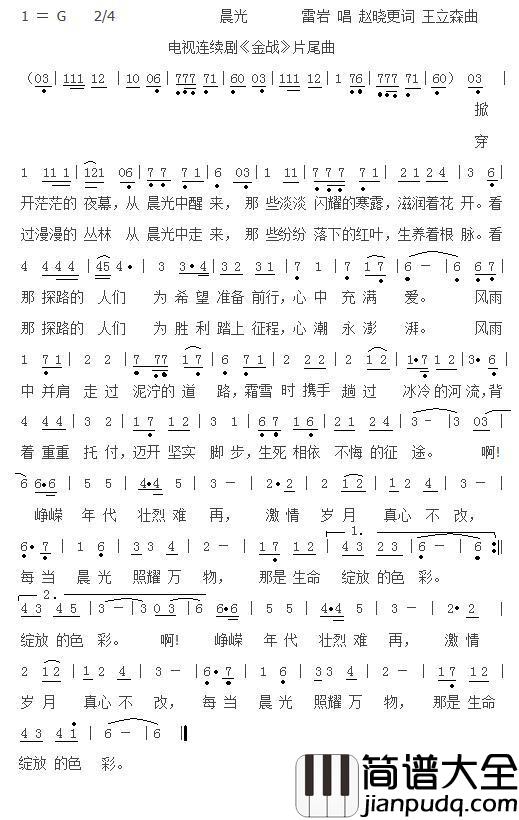 1 = G 2/4 晨光 雷岩 唱 赵晓更词 王立森曲
电视连续剧《金战》片尾曲
(03 | 111 12 | 10 06 | 777 71 | 6 03 | 111 12 | 1 76 | 777 71 | 60) 03 |
掀
穿
1 11 1 | 121 06 | 7 77 71 | 6 03 | 2 11 1 | 17 07 | 6 66 41 | 3 6 |
开茫茫的 夜幕，从 晨光中醒 来，那 些淡淡 闪耀的寒露，滋润着花 开。看
过漫漫的 丛林 从 晨光中走 来，那 些纷纷 落下的红叶，生养着根 脉。看
4 444 | 45 4· | 3 3·4 | 32 31 | 7 1 | 7 17 | 6 - | 6 67 |
那 探路的 人们 为 希望 准备 前行，心中 充满 爱。 风雨
那 探路的 人们 为 胜利 踏上 征程，心潮 永澎 湃。 风雨
1 71 | 2 2 | 7 77 17 | 6 61 | 2 22 | 2 12 | 1·7 12 | 3· 6 |
中 并肩 走过 泥泞的 道 路，霜雪 时 携手 趟过 冰冷的 河流，背
4 44 | 3 2 | 17 12 | 3 03 | 67 16 | 21 24 | 3 - | 3 03 |
着 重重 托付，迈开 坚实 脚步，生死 相依 不悔 的征 途。 啊!
6 6·6 | 5 5 | 4·4 5 | 3 - | 2 2 | 2 12 | 1 24 | 3 - |
峥嵘 年代 壮烈 难 再， 激情 岁月 真心 不 改，
6·7 | 1 6 | 33 4 | 2 - | 17 12 | 1. 43 23 | 6 - | 6 :‖
每当 晨光 照耀 万 物， 那是 生命 绽放 的色 彩。
2. 43 45 | 3 - | 3 03 | 6 6·6 | 5 5 | 4·4 5 | 3 - | 2·2 |
绽放 的色 彩。 啊! 峥嵘 年代 壮烈 难 再， 激情
2 12 | 1 24 | 3 - | 6·7 | 1 6 | 33 4 | 2 - | 17 12 |
岁月 真心 不 改， 每当 晨光 照耀 万 物， 那是 生命
43 41 | 6 - | 6 ‖
绽放 的色 彩。
简谱大全
jianpudq.com